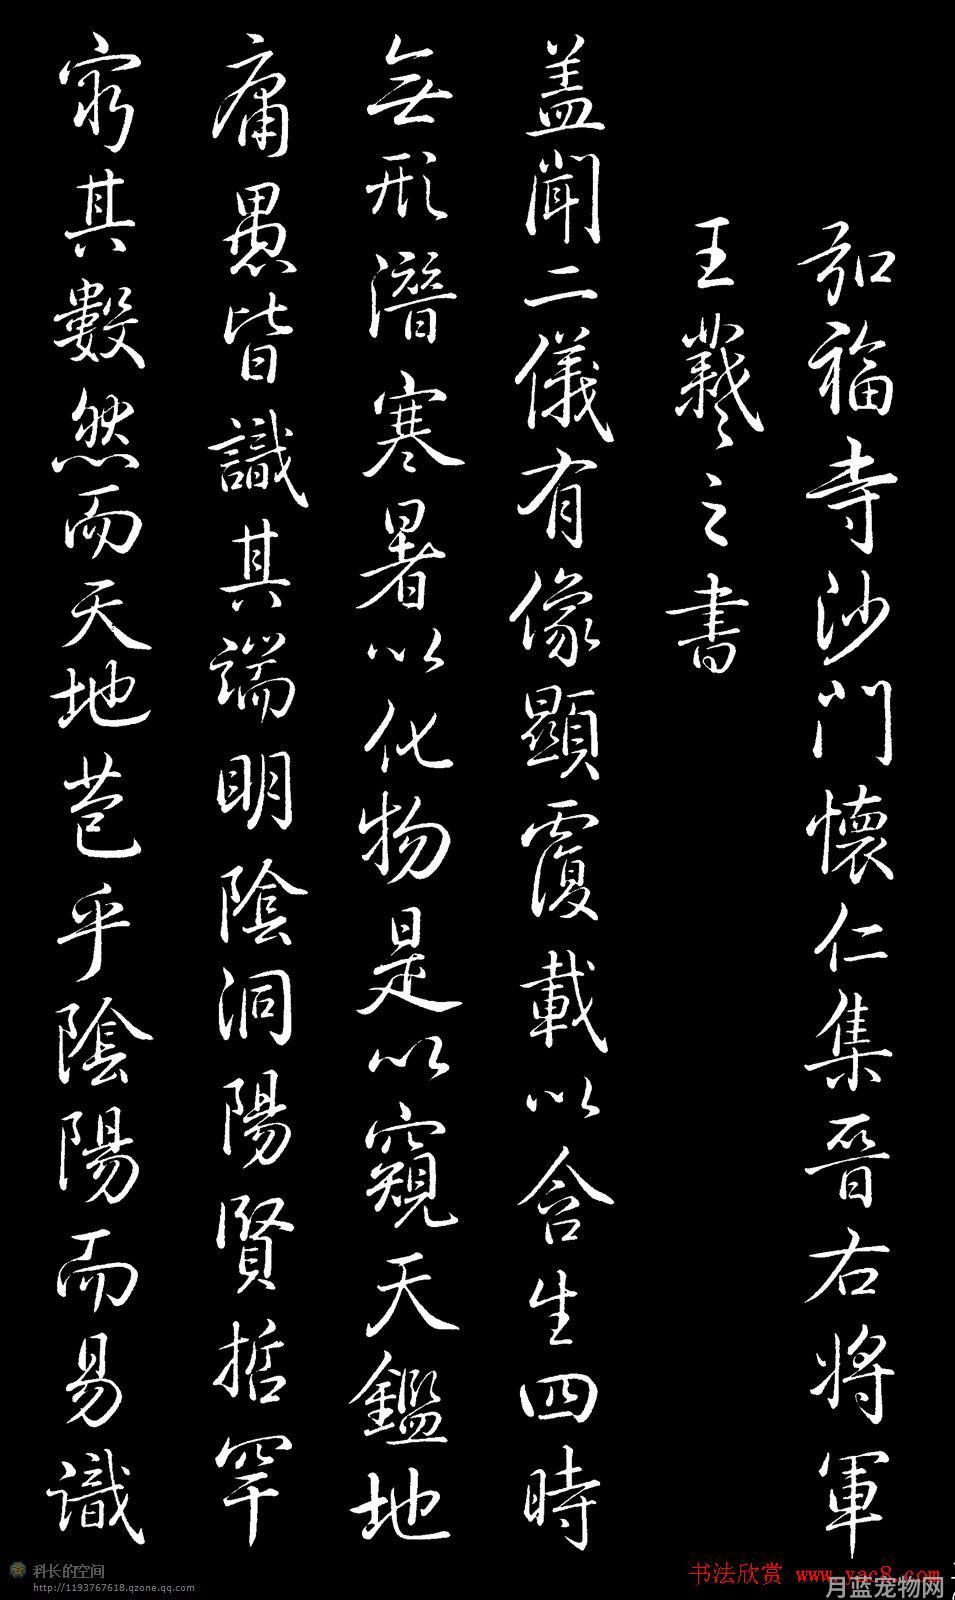 弘福寺沙門懷仁集晉右將軍
王羲之書
盖聞二儀有像顯覆載以含生四時
無形潛寒暑以化物是以窺天鑑地
庸愚皆識其端明陰洞陽賢哲罕
窮其數然而天地苞乎陰陽而易識
科长的空间
http://1193767618.qzone.qq.com
书法欣赏 www.yac8.com
月蓝宠物网